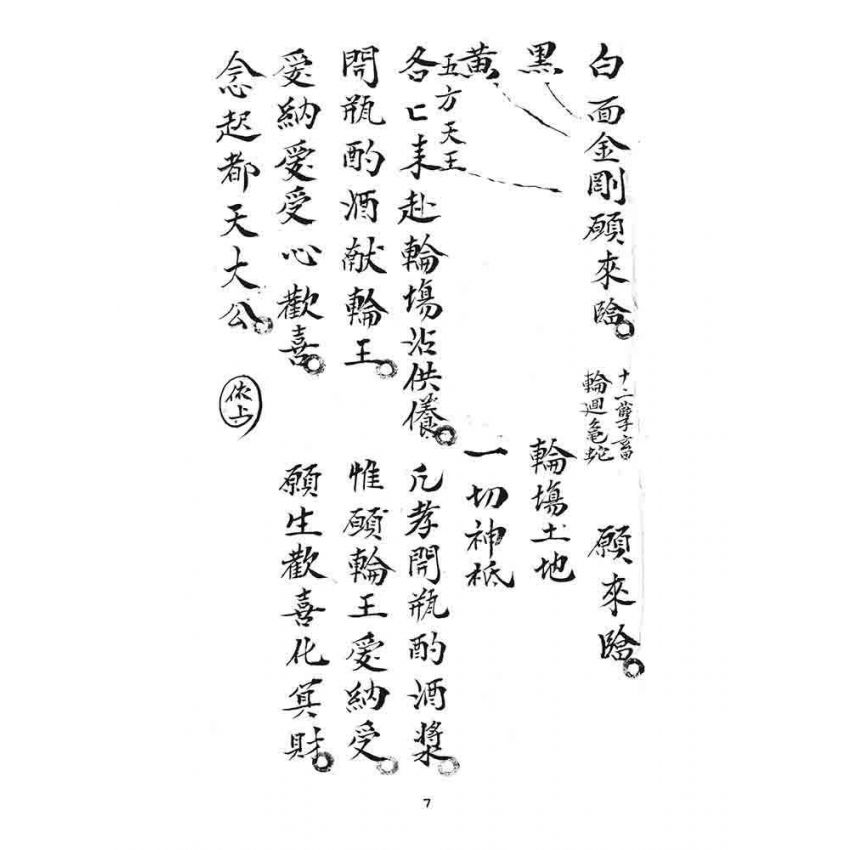 白面金剛願來臨
十二孽畜
輪廻龜蛇
願來臨
黑
輪塲土地
黃
一切神祗
五方天王
各匕耒赴輪塲沾供儀
凢孝開瓶酌酒漿
開瓶酌酒献輪王
惟願輪王愛納受
愛納愛受心歡喜
願生歡喜化冥財
念起都天大公
依上
7